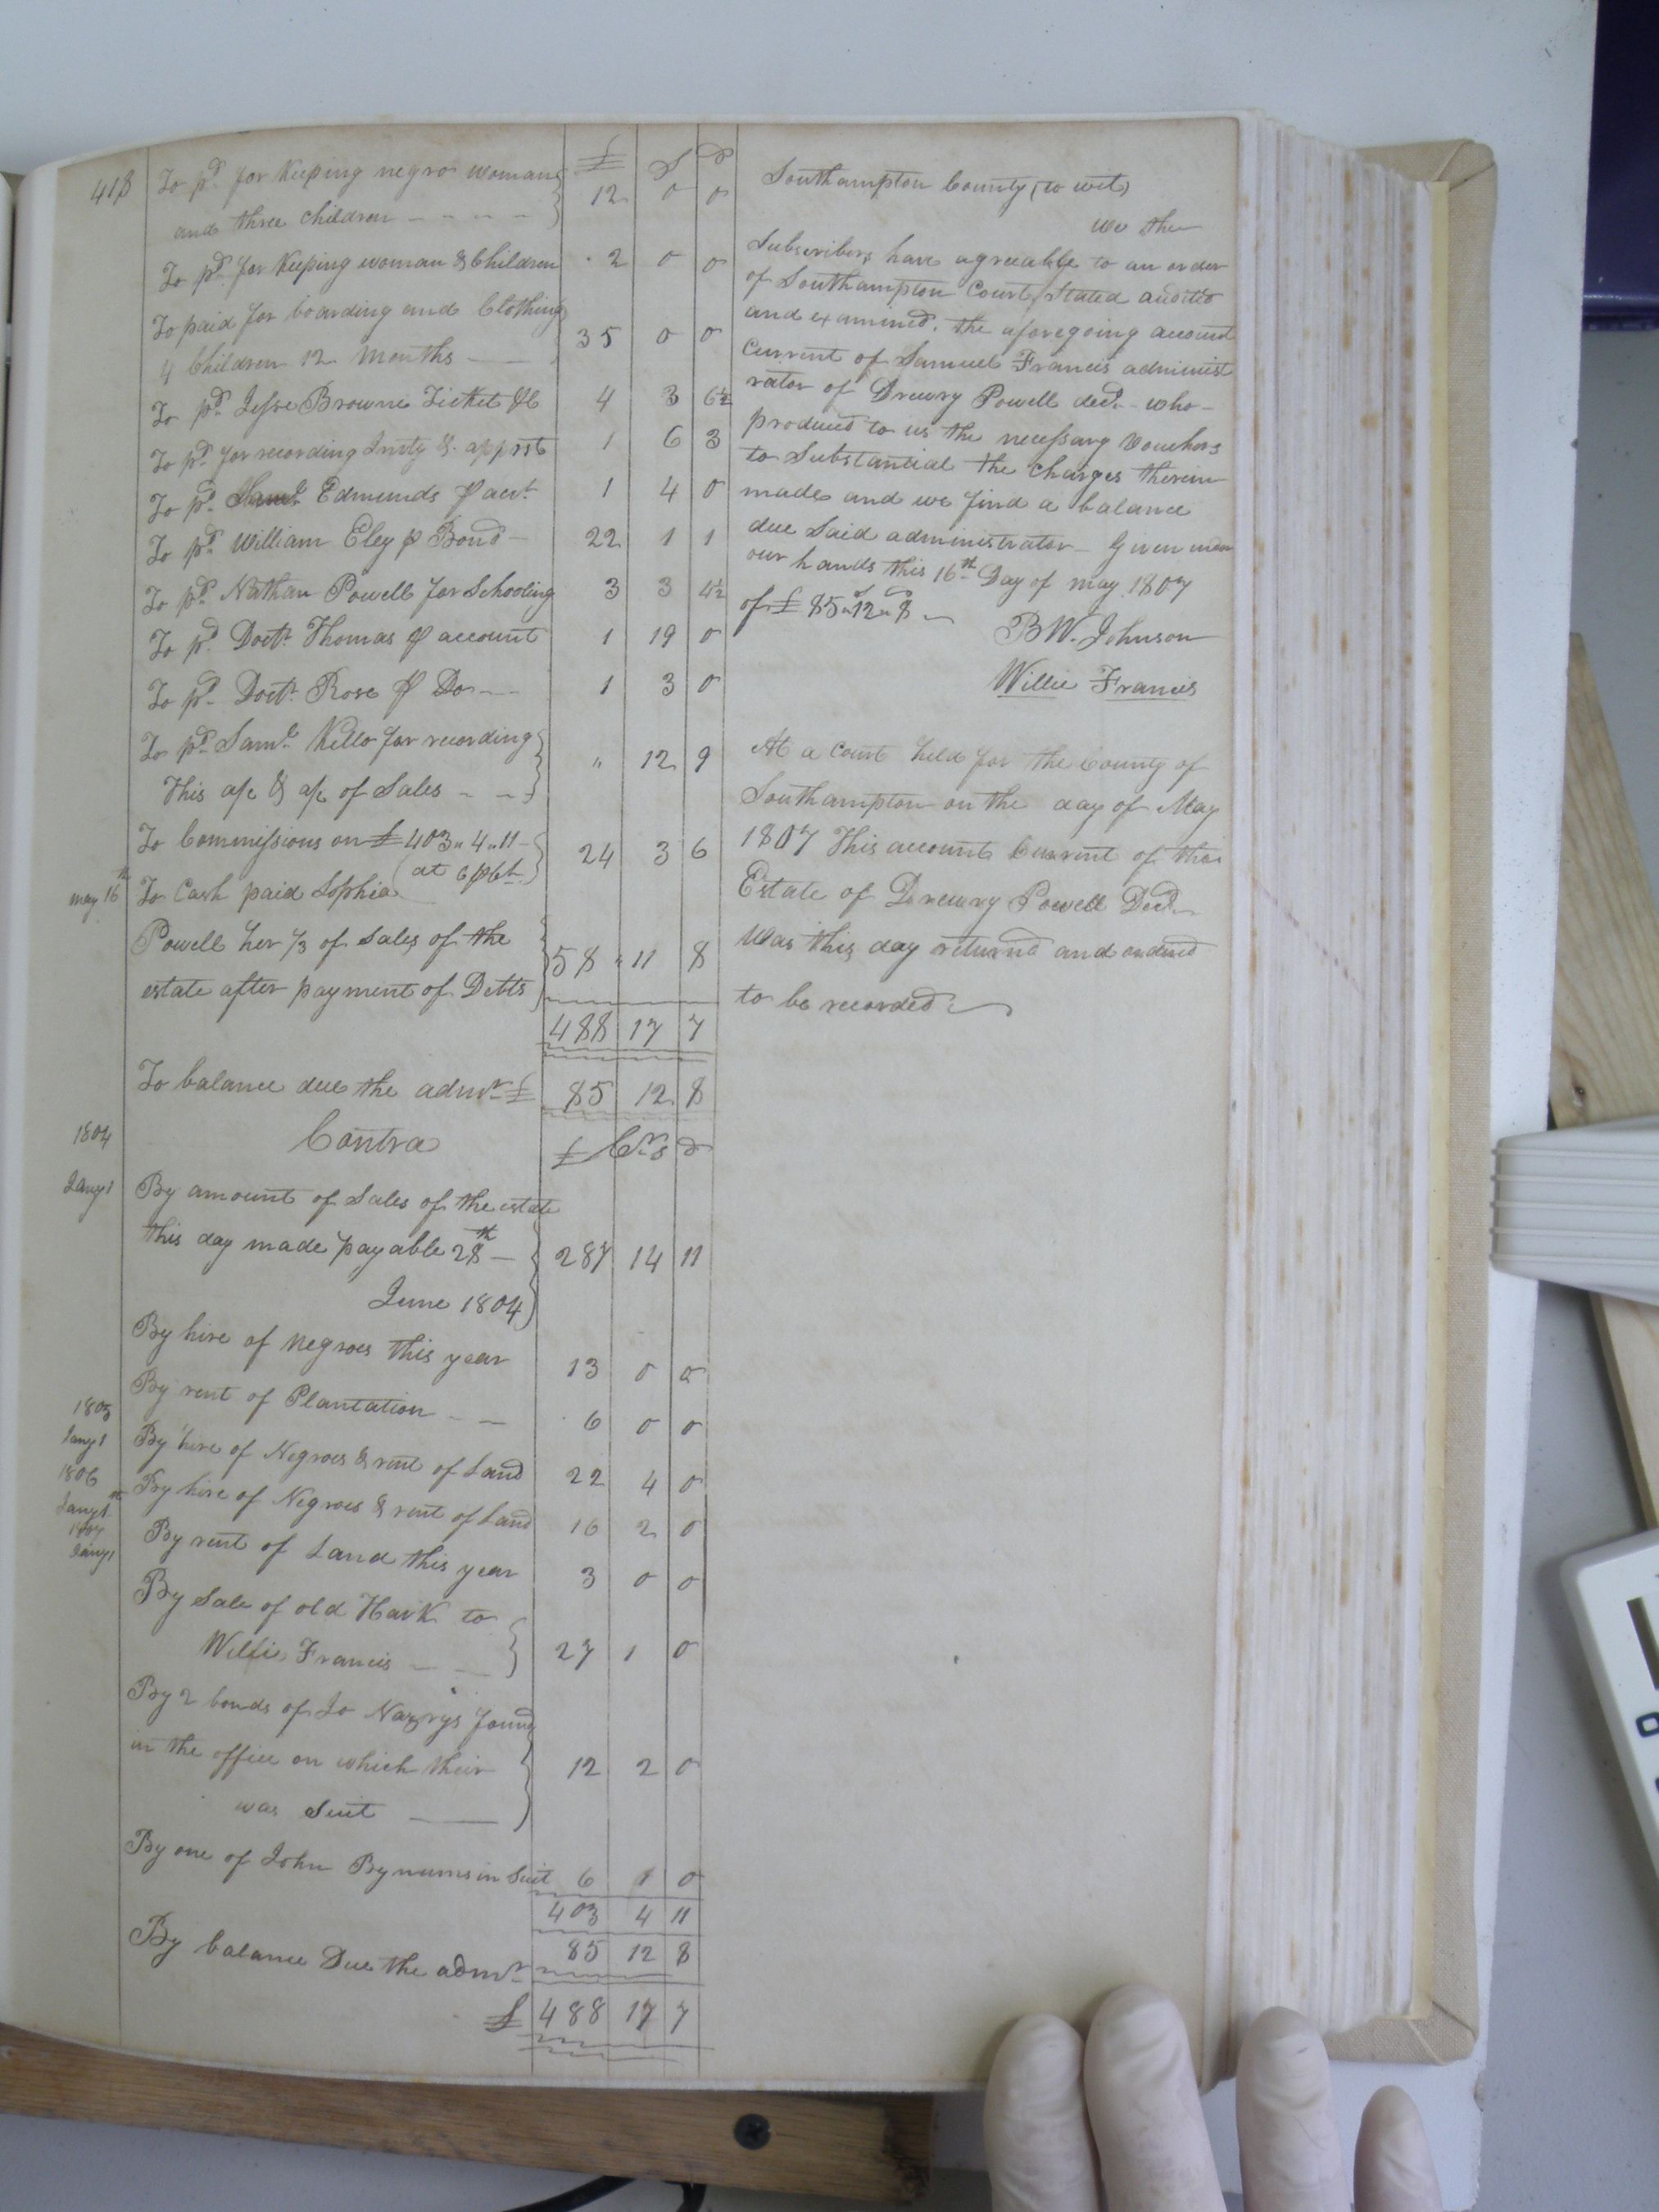 418
£ S D
To pd for Keeping negro woman
and three children - - - - 12 0 0
To pd for Keeping woman & Children 2 0 0
To paid for boarding and Clothing
4 Children 12 Months — 35 0 0
To pd Jesse Browne Ticket &c 4 3 6½
To pd for recording Invty & apprst 1 6 3
To pd Saml Edmunds p acct 1 4 0
To pd William Eley p Bond - 22 1 1
To pd Nathan Powell for Schooling 3 3 4½
To pd Doctr Thomas p account 1 19 0
To pd Doctr Rose p Do — 1 3 0
To pd Saml Kello for recording
This a/c & a/c of Sales - - " 12 9
To Commissions on £403..4..11 -
at 6 p Ct 24 3 6
may 16th To Cash paid Sophia
Powell her 1/3 of Sales of the
estate after payment of Debts 58 " 11 8
488 17 7
To balance due the admr £ 85 12 8
1804 Contra £ Cr s d
Jany 1 By amount of Sales of the estate
this day made payable 28th —
June 1804 287 14 11
By hire of negroes this year 13 0 0
By rent of Plantation - - 6 0 0
1805
Jany 1 By hire of Negroes & rent of Land 22 4 0
1806
Jany 1st By hire of Negroes & rent of Land 16 2 0
1807
Jany 1 By rent of Land this year 3 0 0
By Sale of old Hark to
Willie Francis — — 27 1 0
By 2 bonds of Jo Nazrys found
in the office on which their
was Suit — 12 2 0
By one of John Bynums in Suit 6 1 0
403 4 11
By balance Due the admr 85 12 8
£ 488 17 7
Southampton County (to wit)
We the
Subscribers have agreeable to an order
of Southampton Court, Stated audited
and examined, the aforegoing account
Current of Samuel Francis administ
rator of Drewry Powell decd - who -
produced to us the necessary Vouchers
to Substantial the Charges therein
made and we find a balance
due Said administrator - Given under
our hands this 16th Day of may 1807
of £ 85..12..8
BW. Johnson
Willie Francis
At a Court held for the County of
Southampton on the day of May
1807 This account Current of the
Estate of Drewry Powell Decd
Was this day returnd and ordered
to be recorded